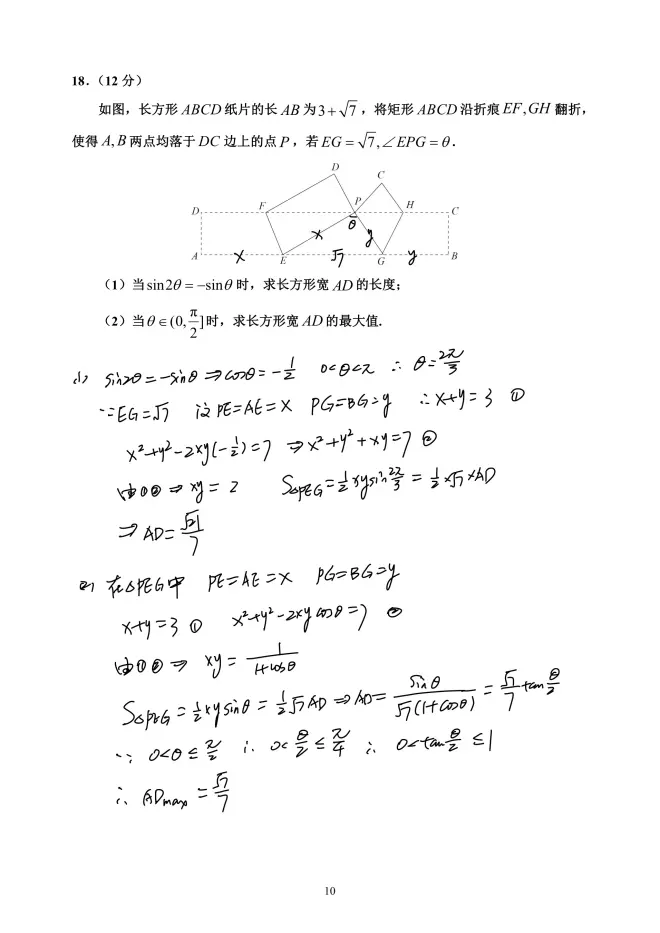 18.（12 分）
如图，长方形 ABCD 纸片的长 AB 为 3+√7，将矩形 ABCD 沿折痕 EF,GH 翻折，
使得 A,B 两点均落于 DC 边上的点 P，若 EG=√7,∠EPG=θ.
D
C
D F P H C
θ
x y
A x E √7 G y B
（1）当 sin2θ=-sinθ 时，求长方形宽 AD 的长度；
（2）当 θ∈(0,π/2] 时，求长方形宽 AD 的最大值.
(1) sin2θ=-sinθ ⇒cosθ=-1/2 0<θ<π ∴ θ=2π/3
∵EG=√7 设 PE=AE=x PG=BG=y ∴x+y=3 ①
x²+y²-2xy(-1/2)=7 ⇒x²+y²+xy=7 ②
由①② ⇒ xy=2 S△PEG=1/2 xy sin 2π/3 = 1/2×√7×AD
⇒ AD=√21/7
(2) 在△PEG中 PE=AE=x PG=BG=y
x+y=3 ① x²+y²-2xy cosθ=7 ②
由①② ⇒ xy=1/(1+cosθ)
S△PEG=1/2 xy sinθ=1/2 √7 AD ⇒AD= sinθ/(√7(1+cosθ)) = √7/7 tan θ/2
∵ 0<θ≤π/2 ∴ 0<θ/2≤π/4 ∴ 0<tan θ/2 ≤1
∴ ADmax=√7/7
10